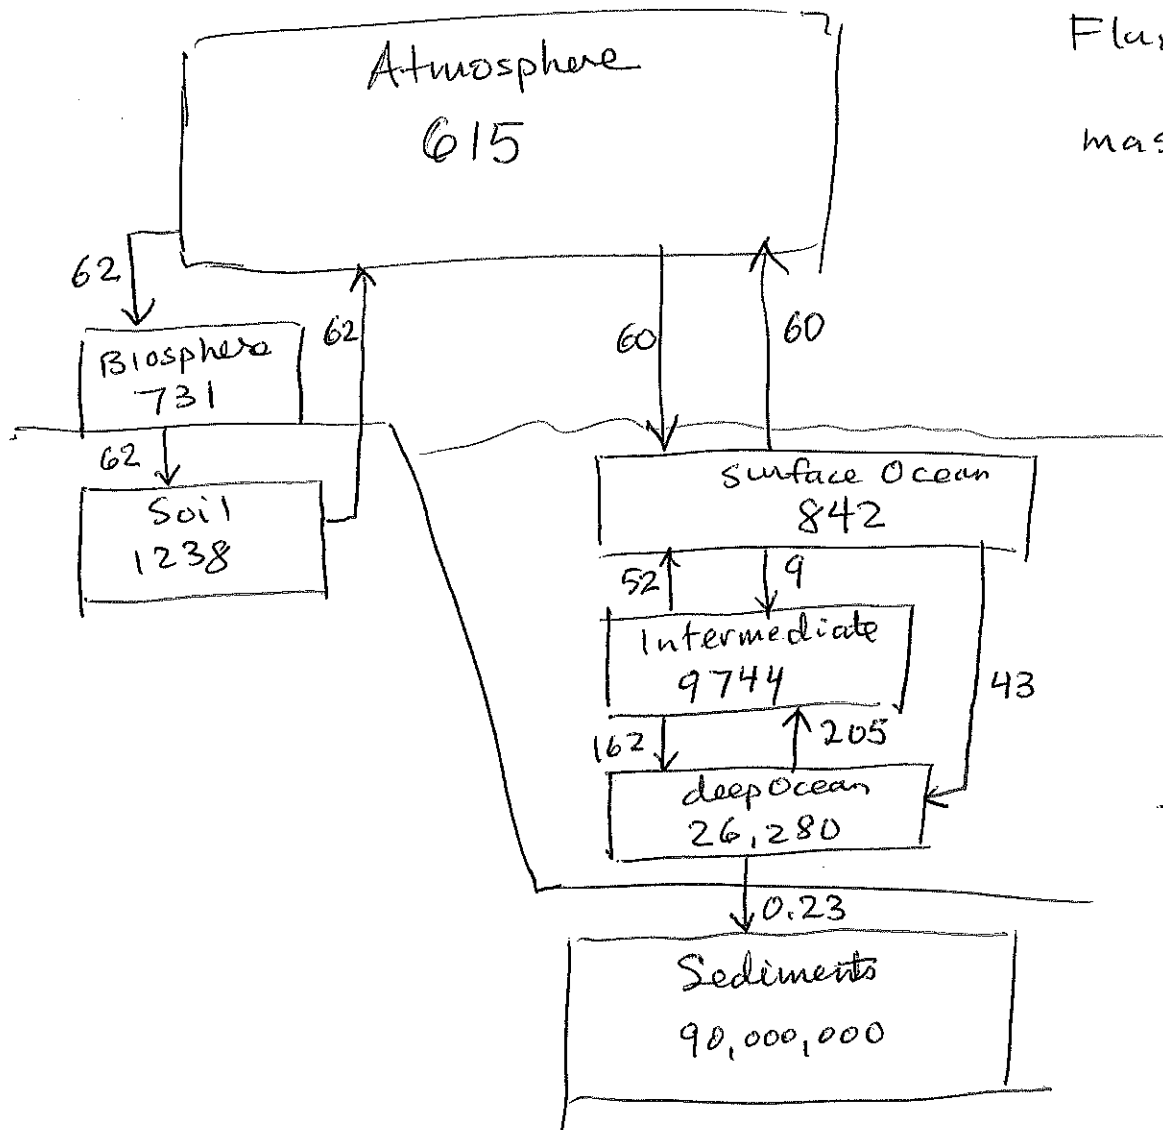 Atmosphere
615
Flux
mas
62
62
60
60
Biosphere
731
62
Soil
1238
Surface Ocean
842
52
9
Intermediate
9744
43
162
205
deep Ocean
26,280
0.23
Sediments
90,000,000